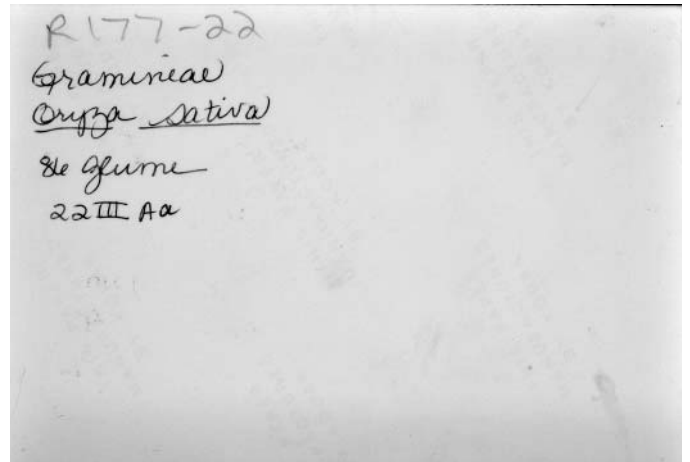 R177-22
Gramineae
Oryza sativa
Ste Glume
22 III Aa